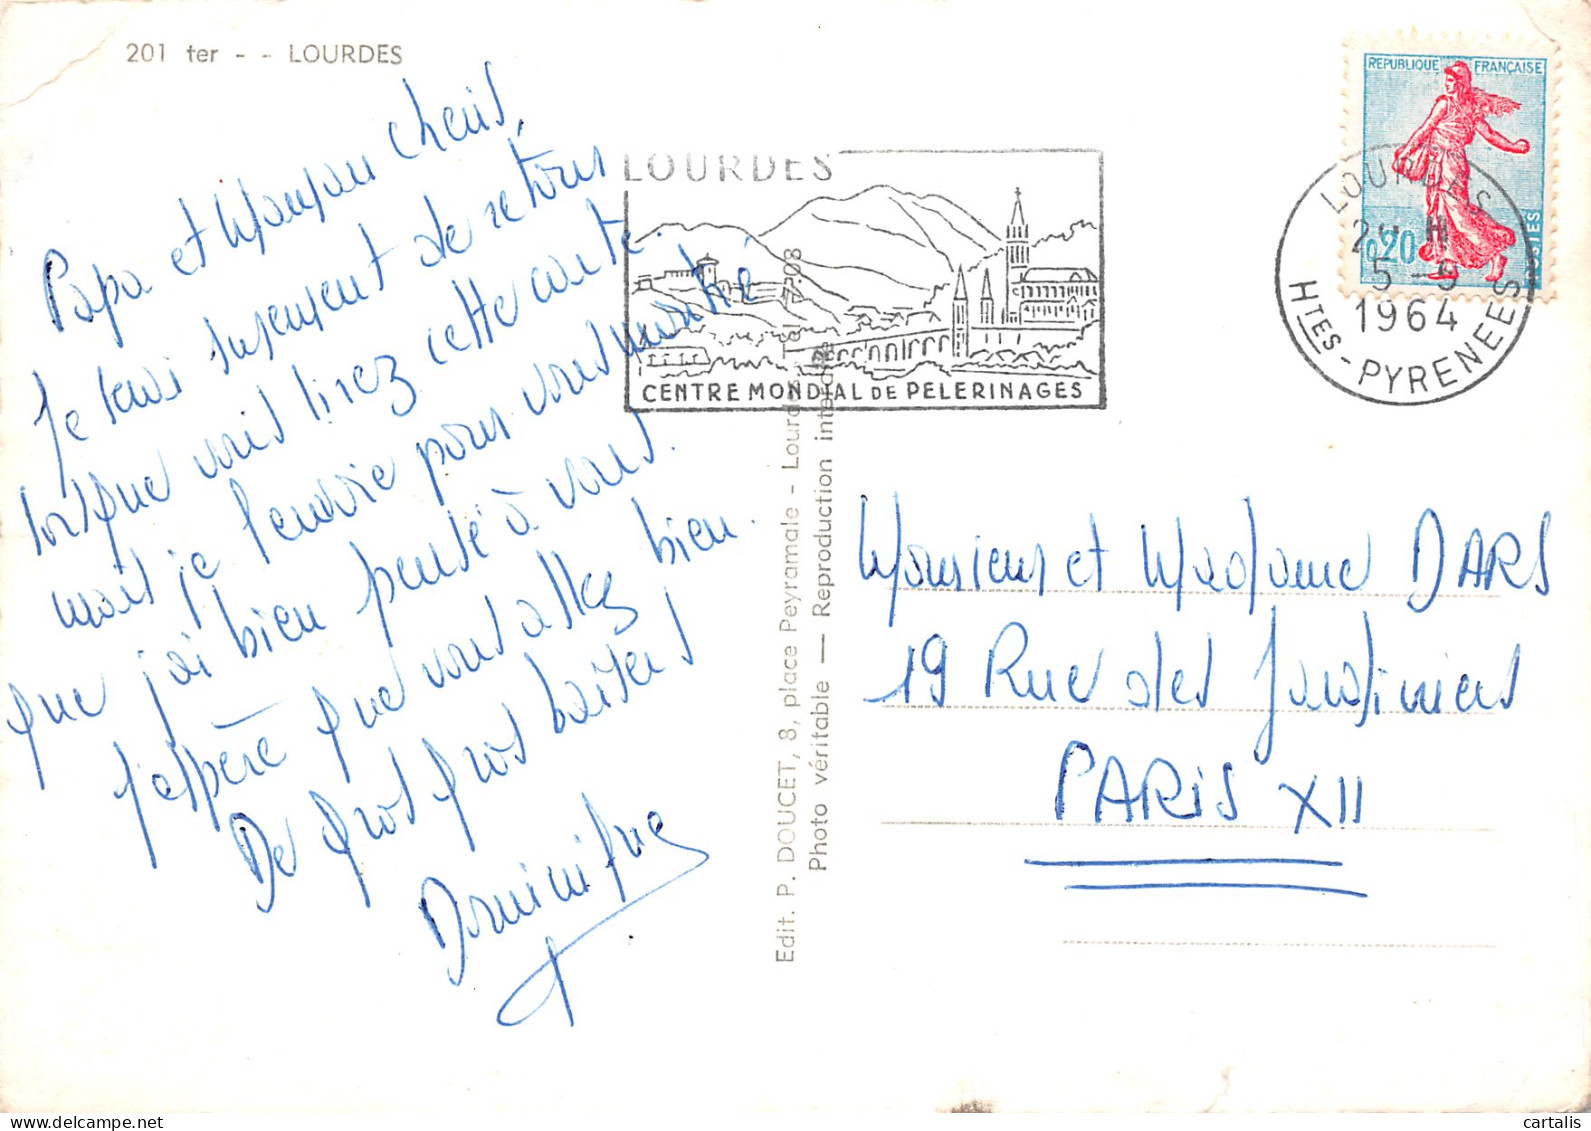 201 ter - - LOURDES
Papa et Maman cheris,
Je serai surement de retour
lorsque vous lirez cette carte.
mais je l'envoie pour vous montré
que j'ai bien pensé à vous.
J'espère que vous allez bien.
De gros gros baisers
Dominique
LOURDES
CENTRE MONDIAL DE PELERINAGES
REPUBLIQUE FRANÇAISE
0,20
POSTES
LOURDES
H
5 - 9
1964
HTES - PYRENEES
Edit. P. DOUCET, 8, place Peyramale - Lourdes Tél 7.08
Photo véritable — Reproduction interdite
Monsieur et Madame DARS
19 Rue des Jardiniers
PARIS XII
cartalis